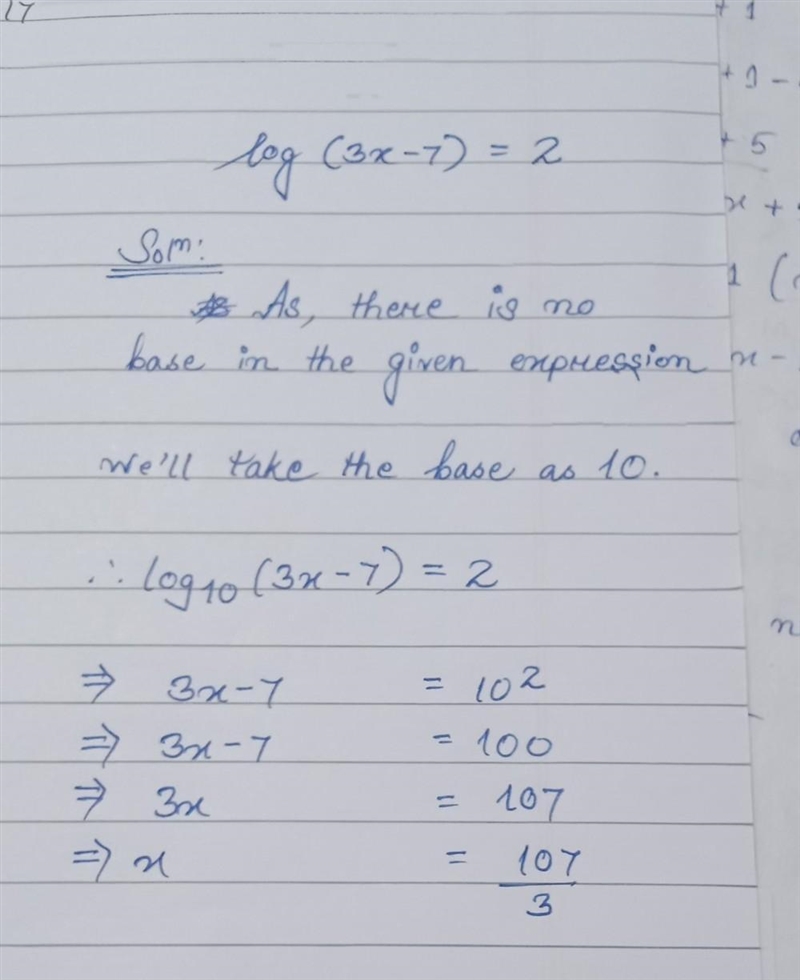 17
log (3x-7) = 2
Som:
As, there is no
base in the given expression
We'll take the base as 10.
∴ log₁₀ (3x-7) = 2
⇒ 3x-7 = 10²
⇒ 3x-7 = 100
⇒ 3x = 107
⇒ x = 107/3
+ 1
+ 1 -
+ 5
x +
1 (
x -
n